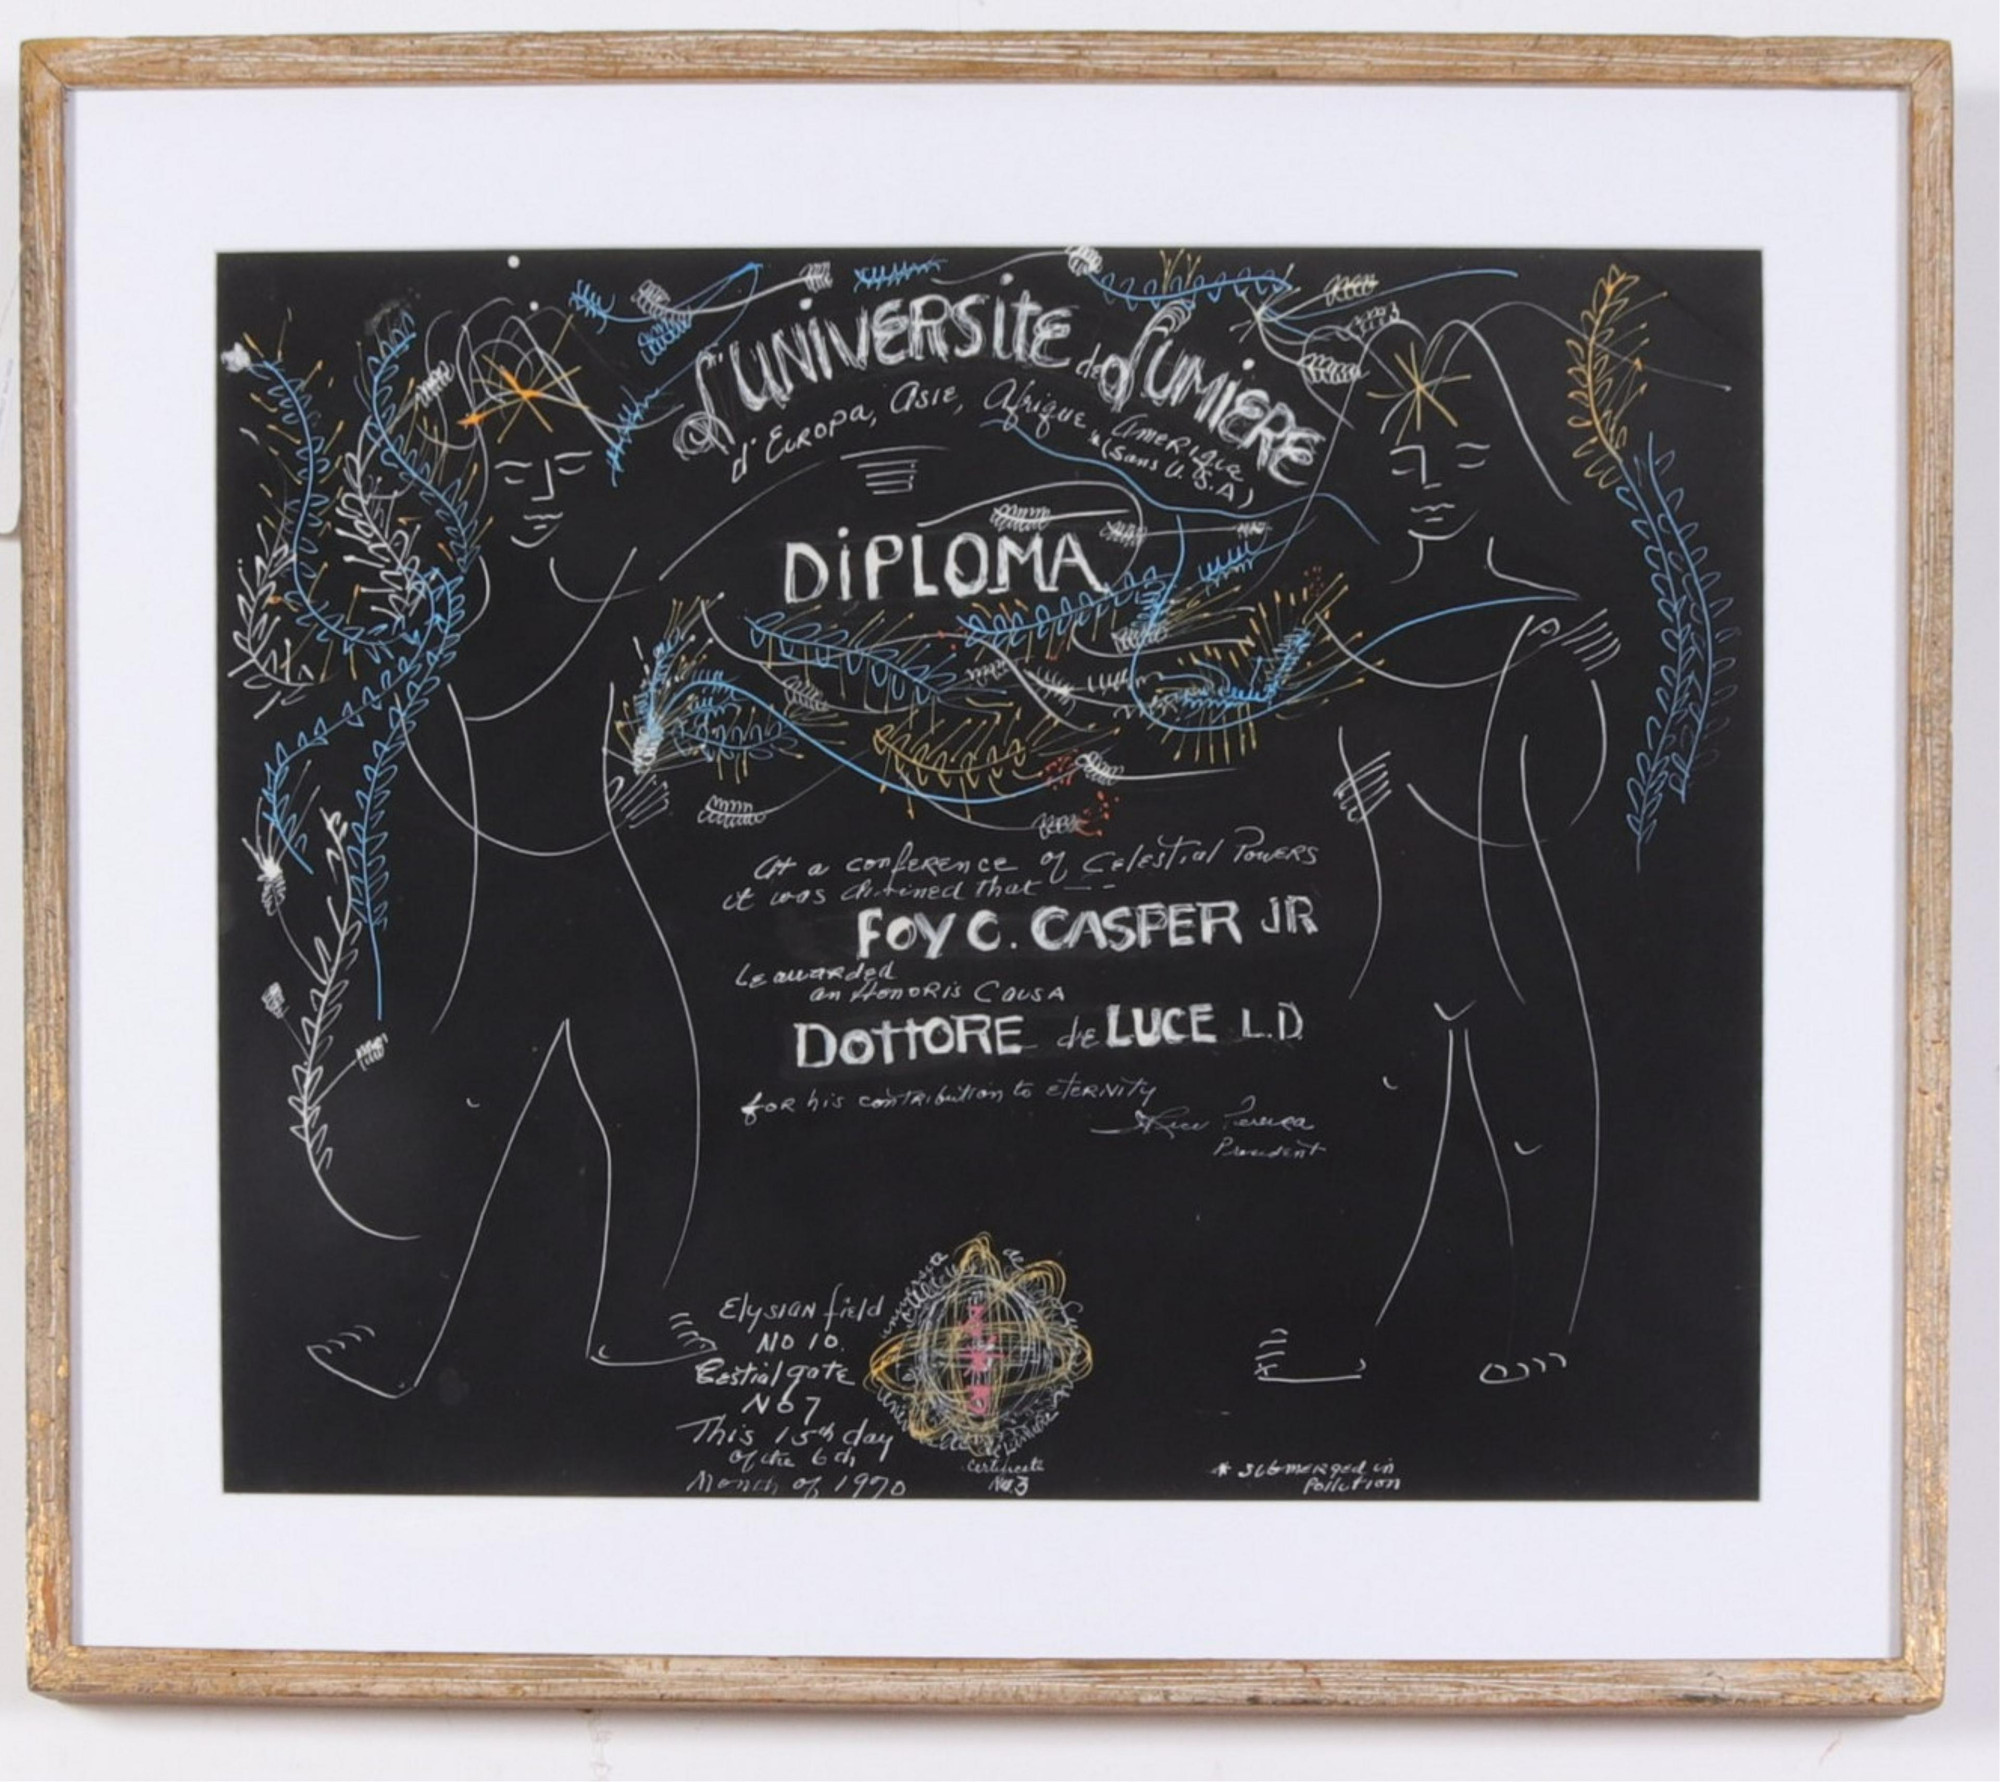 L'UNiVERSitE de LUMiERE
d'EUROPA, ASIE, Afrique, AMERIQUE
*(Sans U.S.A)
DiPLOMA
At a conference of Celestial Powers
it was divined that ---
FOY C. CASPER JR
be awarded
an HONORIS CAUSA
DOttORE de LUCE L.D.
for his contribution to eterNity
I Rice Pereira
President
Elysian field
NO 10.
gate
No 7
This 15th day
of the 6th
Month of 1970
universite de
de Lumiere
Certificate
No. 3
* submerged in
Pollution